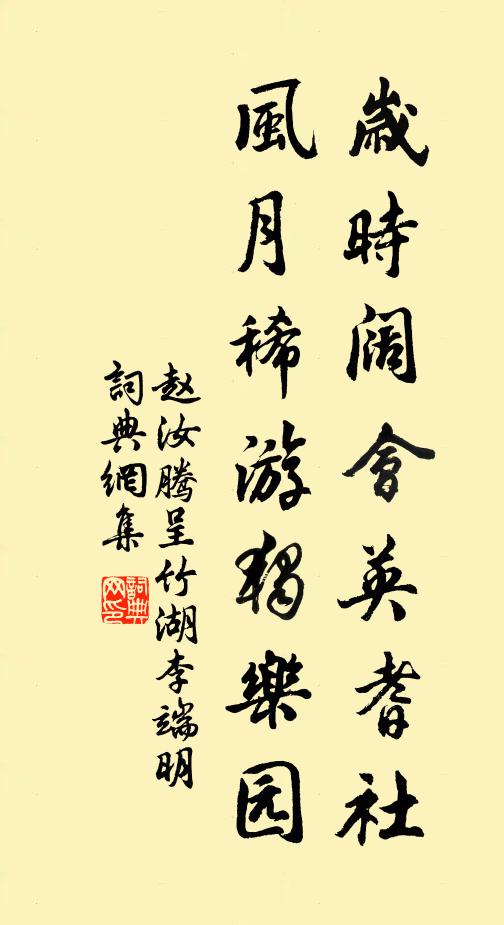 歲時阔會英耆社
風月稀游独樂园
赵汝腾呈竹湖李端明
詞典網集
詞典网印